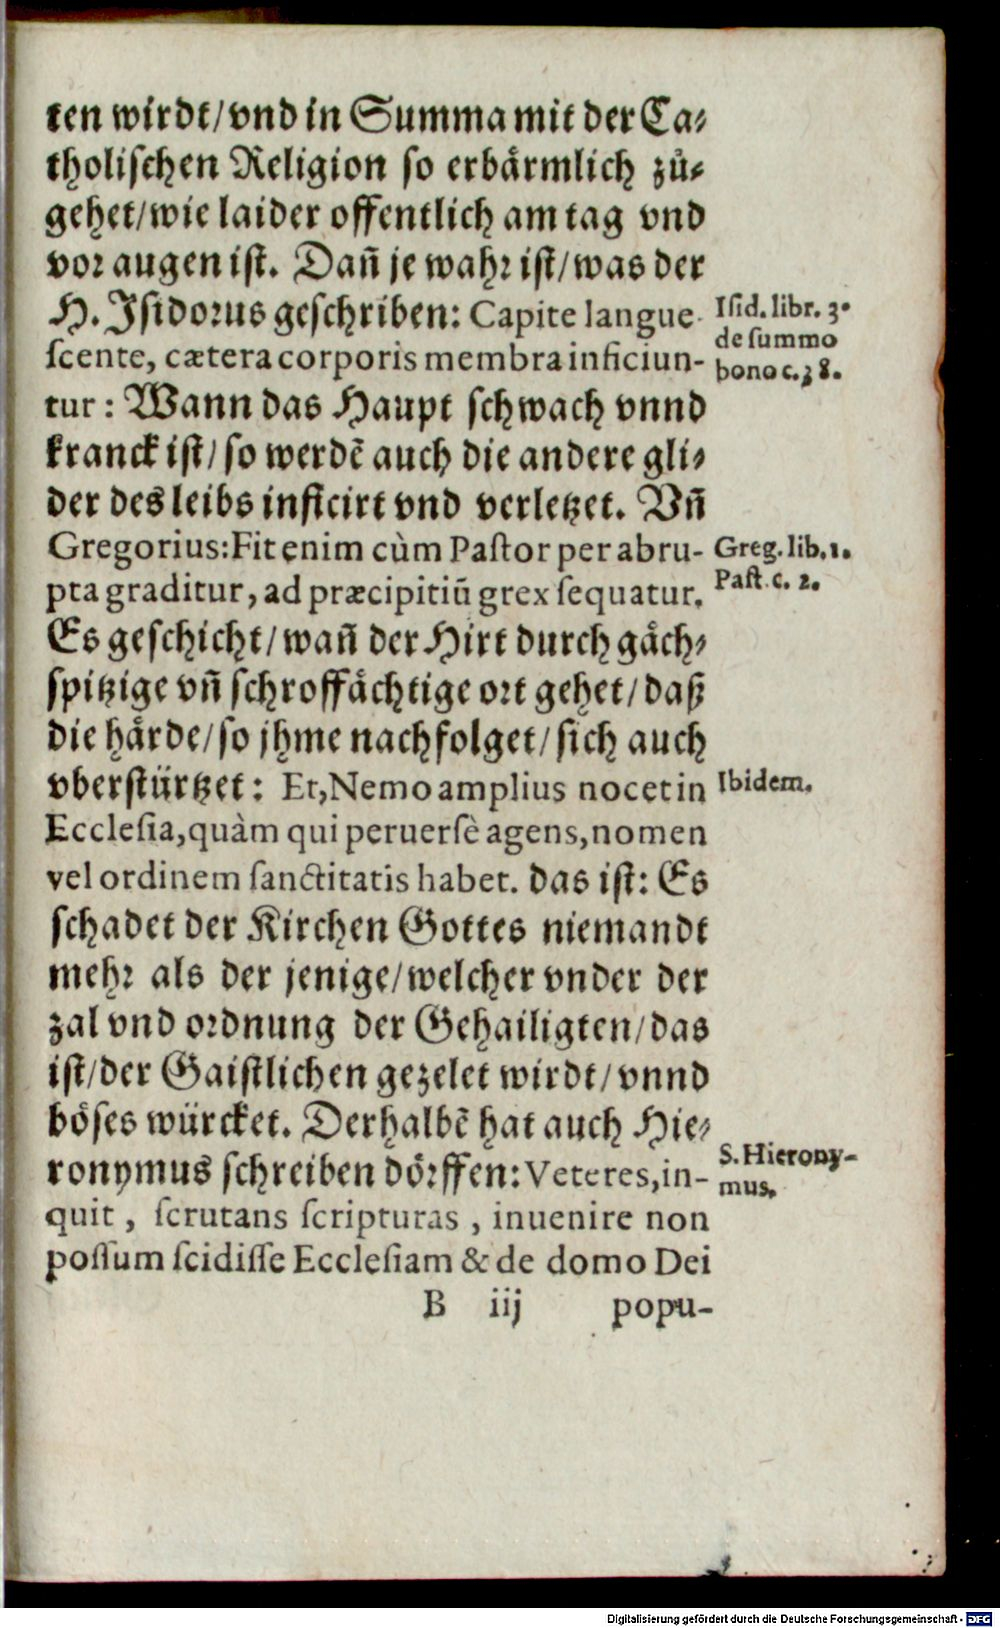 ten wirdt/vnd in Summa mit der Ca⸗
tholischen Religion so erbaͤrmlich zuͦ⸗
gehet/wie laider offentlich am tag vnd
vor augen ist. Dañ je wahr ist/was der
H. Isidorus geschriben: Capite langue-
scente, cætera corporis membra inficiun-
tur: Wann das Haupt schwach vnnd
kranck ist/so werdẽ auch die andere gli⸗
der des leibs inficirt vnd verletzet. Vñ
Gregorius: Fit enim cùm Pastor per abru-
pta graditur, ad præcipitiũ grex sequatur.
Es geschicht/wañ der Hirt durch gaͤch⸗
spitzige vñ schroffaͤchtige ort gehet/daß
die haͤrde/so jhme nachfolget/sich auch
vberstürtzet: Et, Nemo amplius nocet in
Ecclesia, quàm qui peruersè agens, nomen
vel ordinem sanctitatis habet. das ist: Es
schadet der Kirchen Gottes niemandt
mehr als der jenige/welcher vnder der
zal vnd ordnung der Gehailigten/das
ist/der Gaistlichen gezelet wirdt/vnnd
boͤses würcket. Derhalbẽ hat auch Hie⸗
ronymus schreiben doͤrffen: Veteres, in-
quit, scrutans scripturas, inuenire non
possum scidisse Ecclesiam & de domo Dei
B iij popu-
Isid. libr. 3.
de summo
bono c. 38.
Greg. lib. 1.
Past. c. 2.
Ibidem.
S. Hierony-
mus.
Digitalisierung gefördert durch die Deutsche Forschungsgemeinschaft - DFG